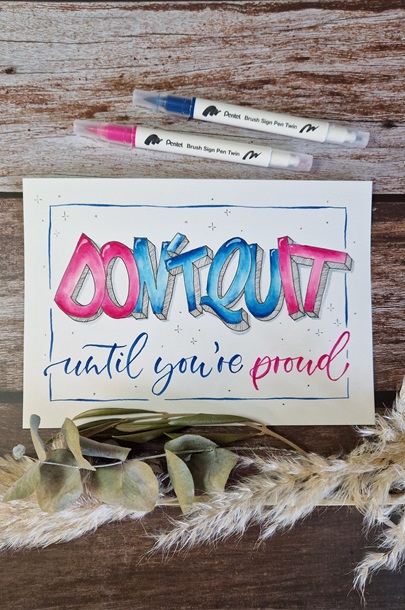 Pentel Brush Sign Pen Twin
Pentel Brush Sign Pen Twin
DON'T QUIT
until you're proud